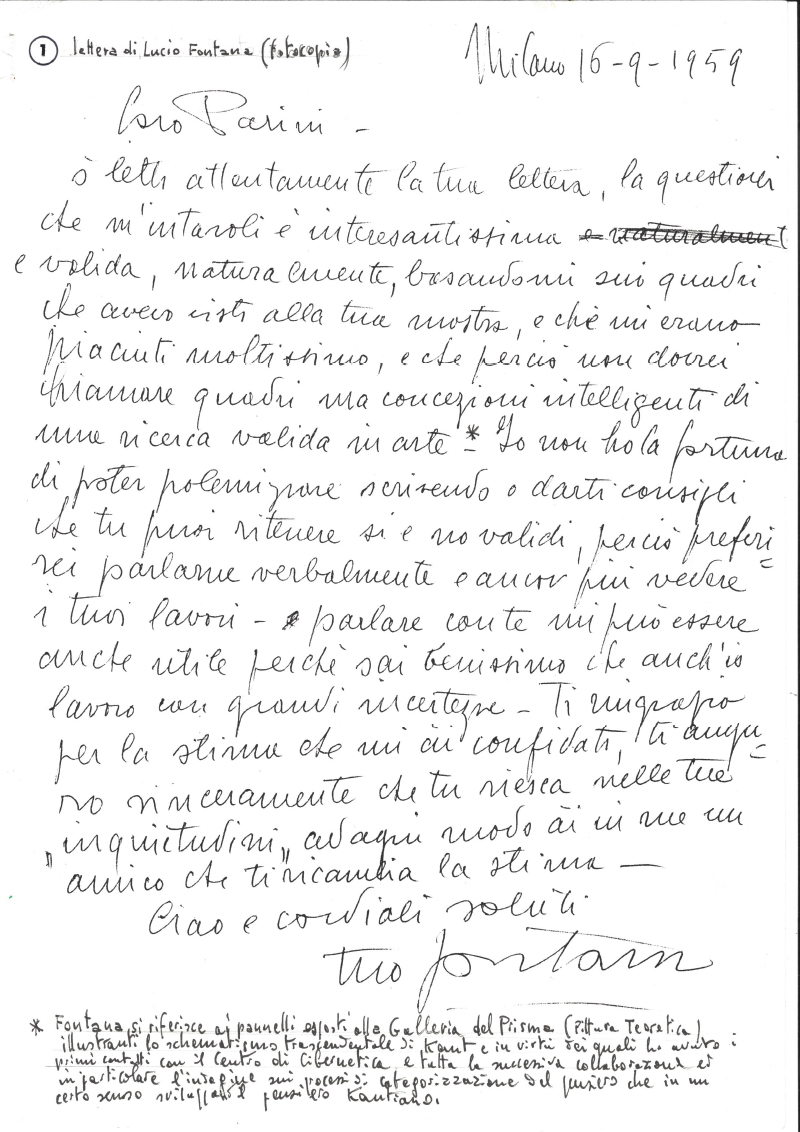 1 lettera di Lucio Fontana (fotocopia)
Milano 16-9-1959
Caro Parini -
ò letto attentamente la tua lettera, la questione
che m'intavoli è interesantissima e naturalment
e valida, naturalmente, basandomi sui quadri
che avevo visti alla tua mostra, e che mi erano
piaciuti moltissimo, e che perciò non dovrei
chiamare quadri ma concezioni intelligenti di
una ricerca valida in arte * Io non ho la fortuna
di poter polemizzare scrivendo o darti consigli
che tu puoi ritenere si e no validi, perciò preferi=
rei parlarne verbalmente e ancor più vedere
i tuoi lavori - parlare con te mi può essere
anche utile perchè sai benissimo che anch'io
lavoro con grandi incertezze - Ti ringrazio
per la stima che mi ài confidato, ti augu=
ro sinceramente che tu riesca nelle tue
"inquietudini" ad ogni modo ài in me un
amico che ti ricambia la stima —
Ciao e cordiali saluti
tuo Fontana
* Fontana si riferisce ai pannelli esposti alla Galleria del Prisma (Pittura Teoretica)
illustranti lo schematismo trascendentale di Kant e in virtù dei quali ho avuto i
primi contatti con il Centro di Cibernetica, e tutta la successiva collaborazione ed
in particolare l'indagine sui processi di categorizzazione del pensiero che in un
certo senso sviluppano il pensiero Kantiano.